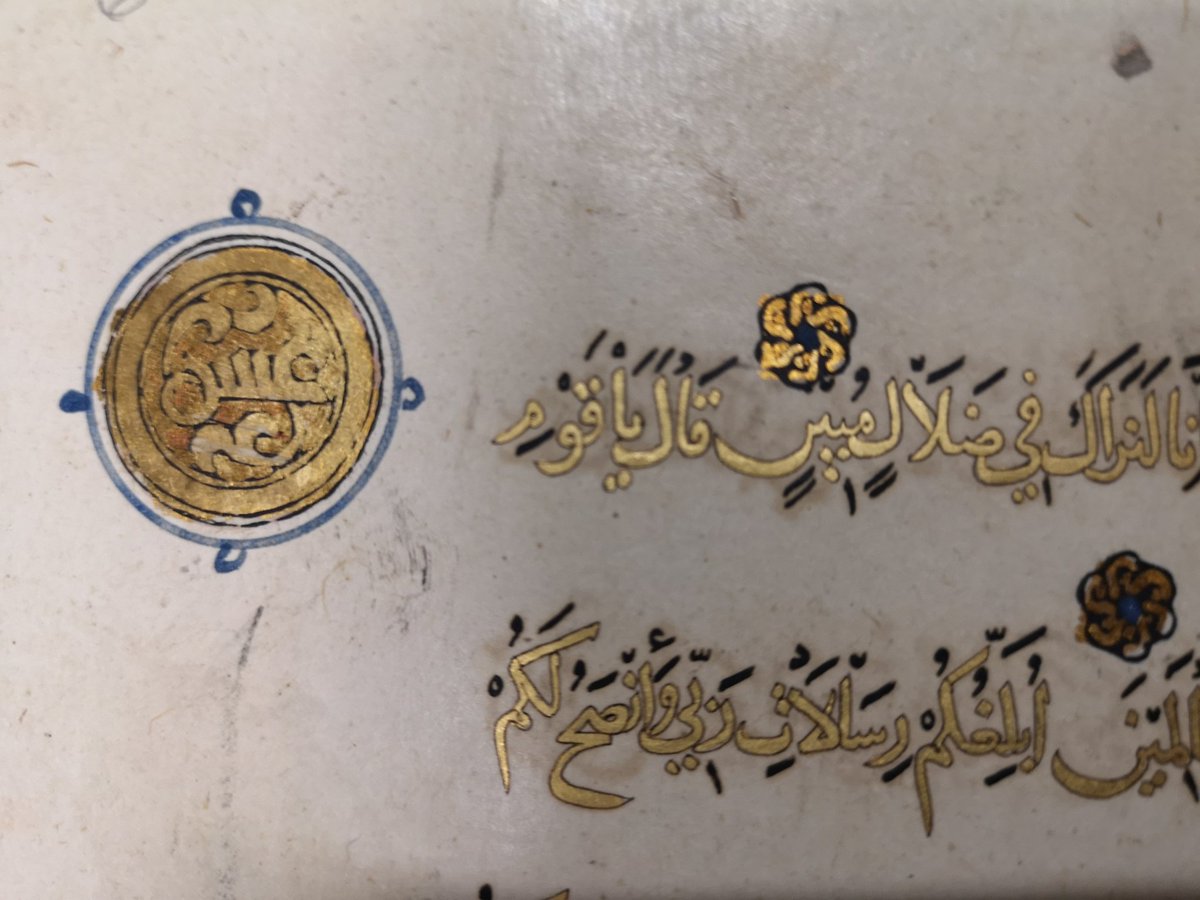 لَنَرَاكَ فِي ضَلَالٍ مُبِينٍ قَالَ يَا قَوْمِ
أُبَلِّغُكُمْ رِسَالَاتِ رَبِّي وَأَنْصَحُ لَكُمْ